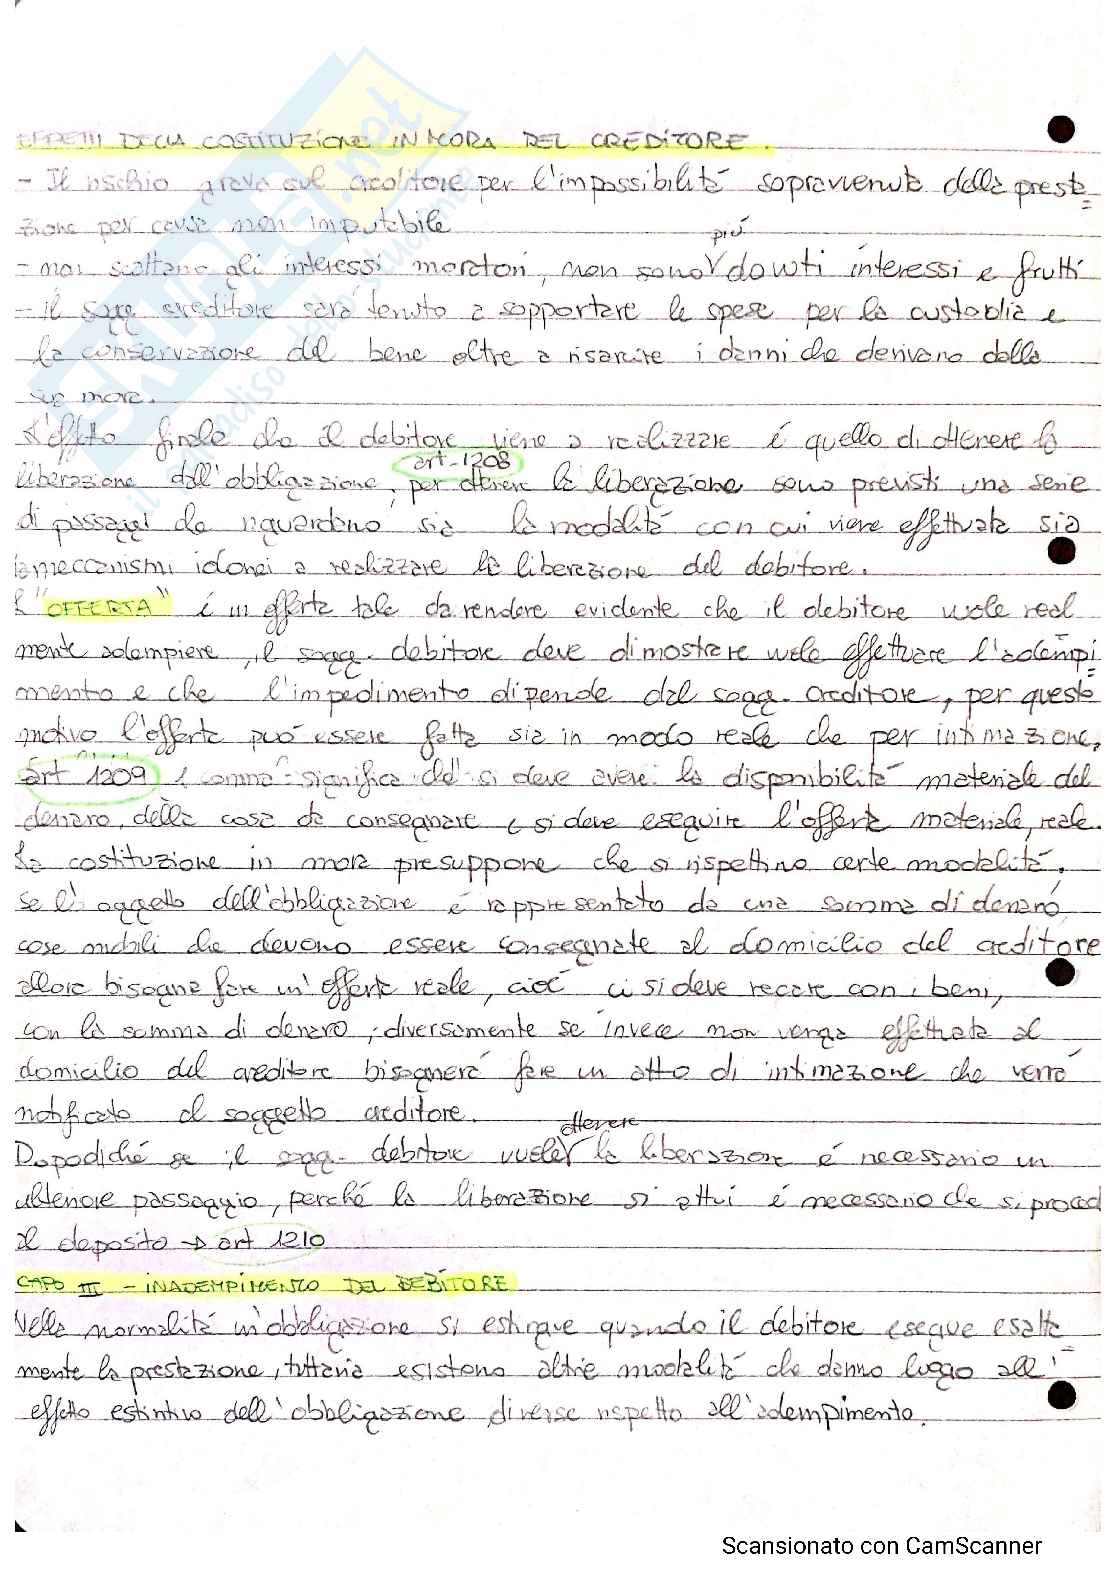 EFFETTI DELLA COSTITUZIONE IN MORA DEL CREDITORE.
- Il rischio grava sul creditore per l'impossibilitá sopravvenuta della presta=
zione per causa non imputabile
più
- non scattano gli interessi moratori, non sono dovuti interessi e frutti
- il sogg creditore sará tenuto a sopportare le spese per la custodia e
la conservazione del bene oltre a risarcire i danni che derivano dalla
sua mora.
L'effetto finale che il debitore viene a realizzare é quello di ottenere la
art. 1208
liberazione dall'obbligazione, per ottenere la liberazione sono previsti una serie
di passaggi che riguardano sia la modalitá con cui viene effettuata sia
i meccanismi idonei a realizzare la liberazione del debitore.
L'"OFFERTA" é un offerta tale da rendere evidente che il debitore vuole real
mente adempiere, il sogg. debitore deve dimostrare vuole effettuare l'adempi=
mento e che l'impedimento dipende dal sogg. creditore, per questo
motivo l'offerta puó essere fatta sia in modo reale che per intimazione,
art 1209 1 comma significa che si deve avere la disponibilitá materiale del
denaro, della cosa da consegnare e si deve eseguire l'offerta materiale, reale.
La costituzione in mora presuppone che si rispettino certe modalitá.
Se l'oggetto dell'obbligazione é rappresentato da una somma di denaro,
cose mobili che devono essere consegnate al domicilio del creditore
allora bisogna fare un'offerta reale, cioé ci si deve recare con i beni,
con la somma di denaro; diversamente se invece non venga effettuata al
domicilio del creditore bisognerá fare un atto di intimazione che verrá
notificato al soggetto creditore.
ottenere
Dopodiché se il sogg. debitore vuole la liberazione é necessario un
ulteriore passaggio, perché la liberazione si attui é necessario che si proced
al deposito → art 1210
CAPO III - INADEMPIMENTO DEL DEBITORE
Nella normalitá un'obbligazione si estingue quando il debitore esegue esatta
mente la prestazione, tuttavia esistono altre modalitá che danno luogo all'
effetto estintivo dell'obbligazione diverse rispetto all'adempimento.
SKUOLA.net
il paradiso dello studente
Scansionato con CamScanner